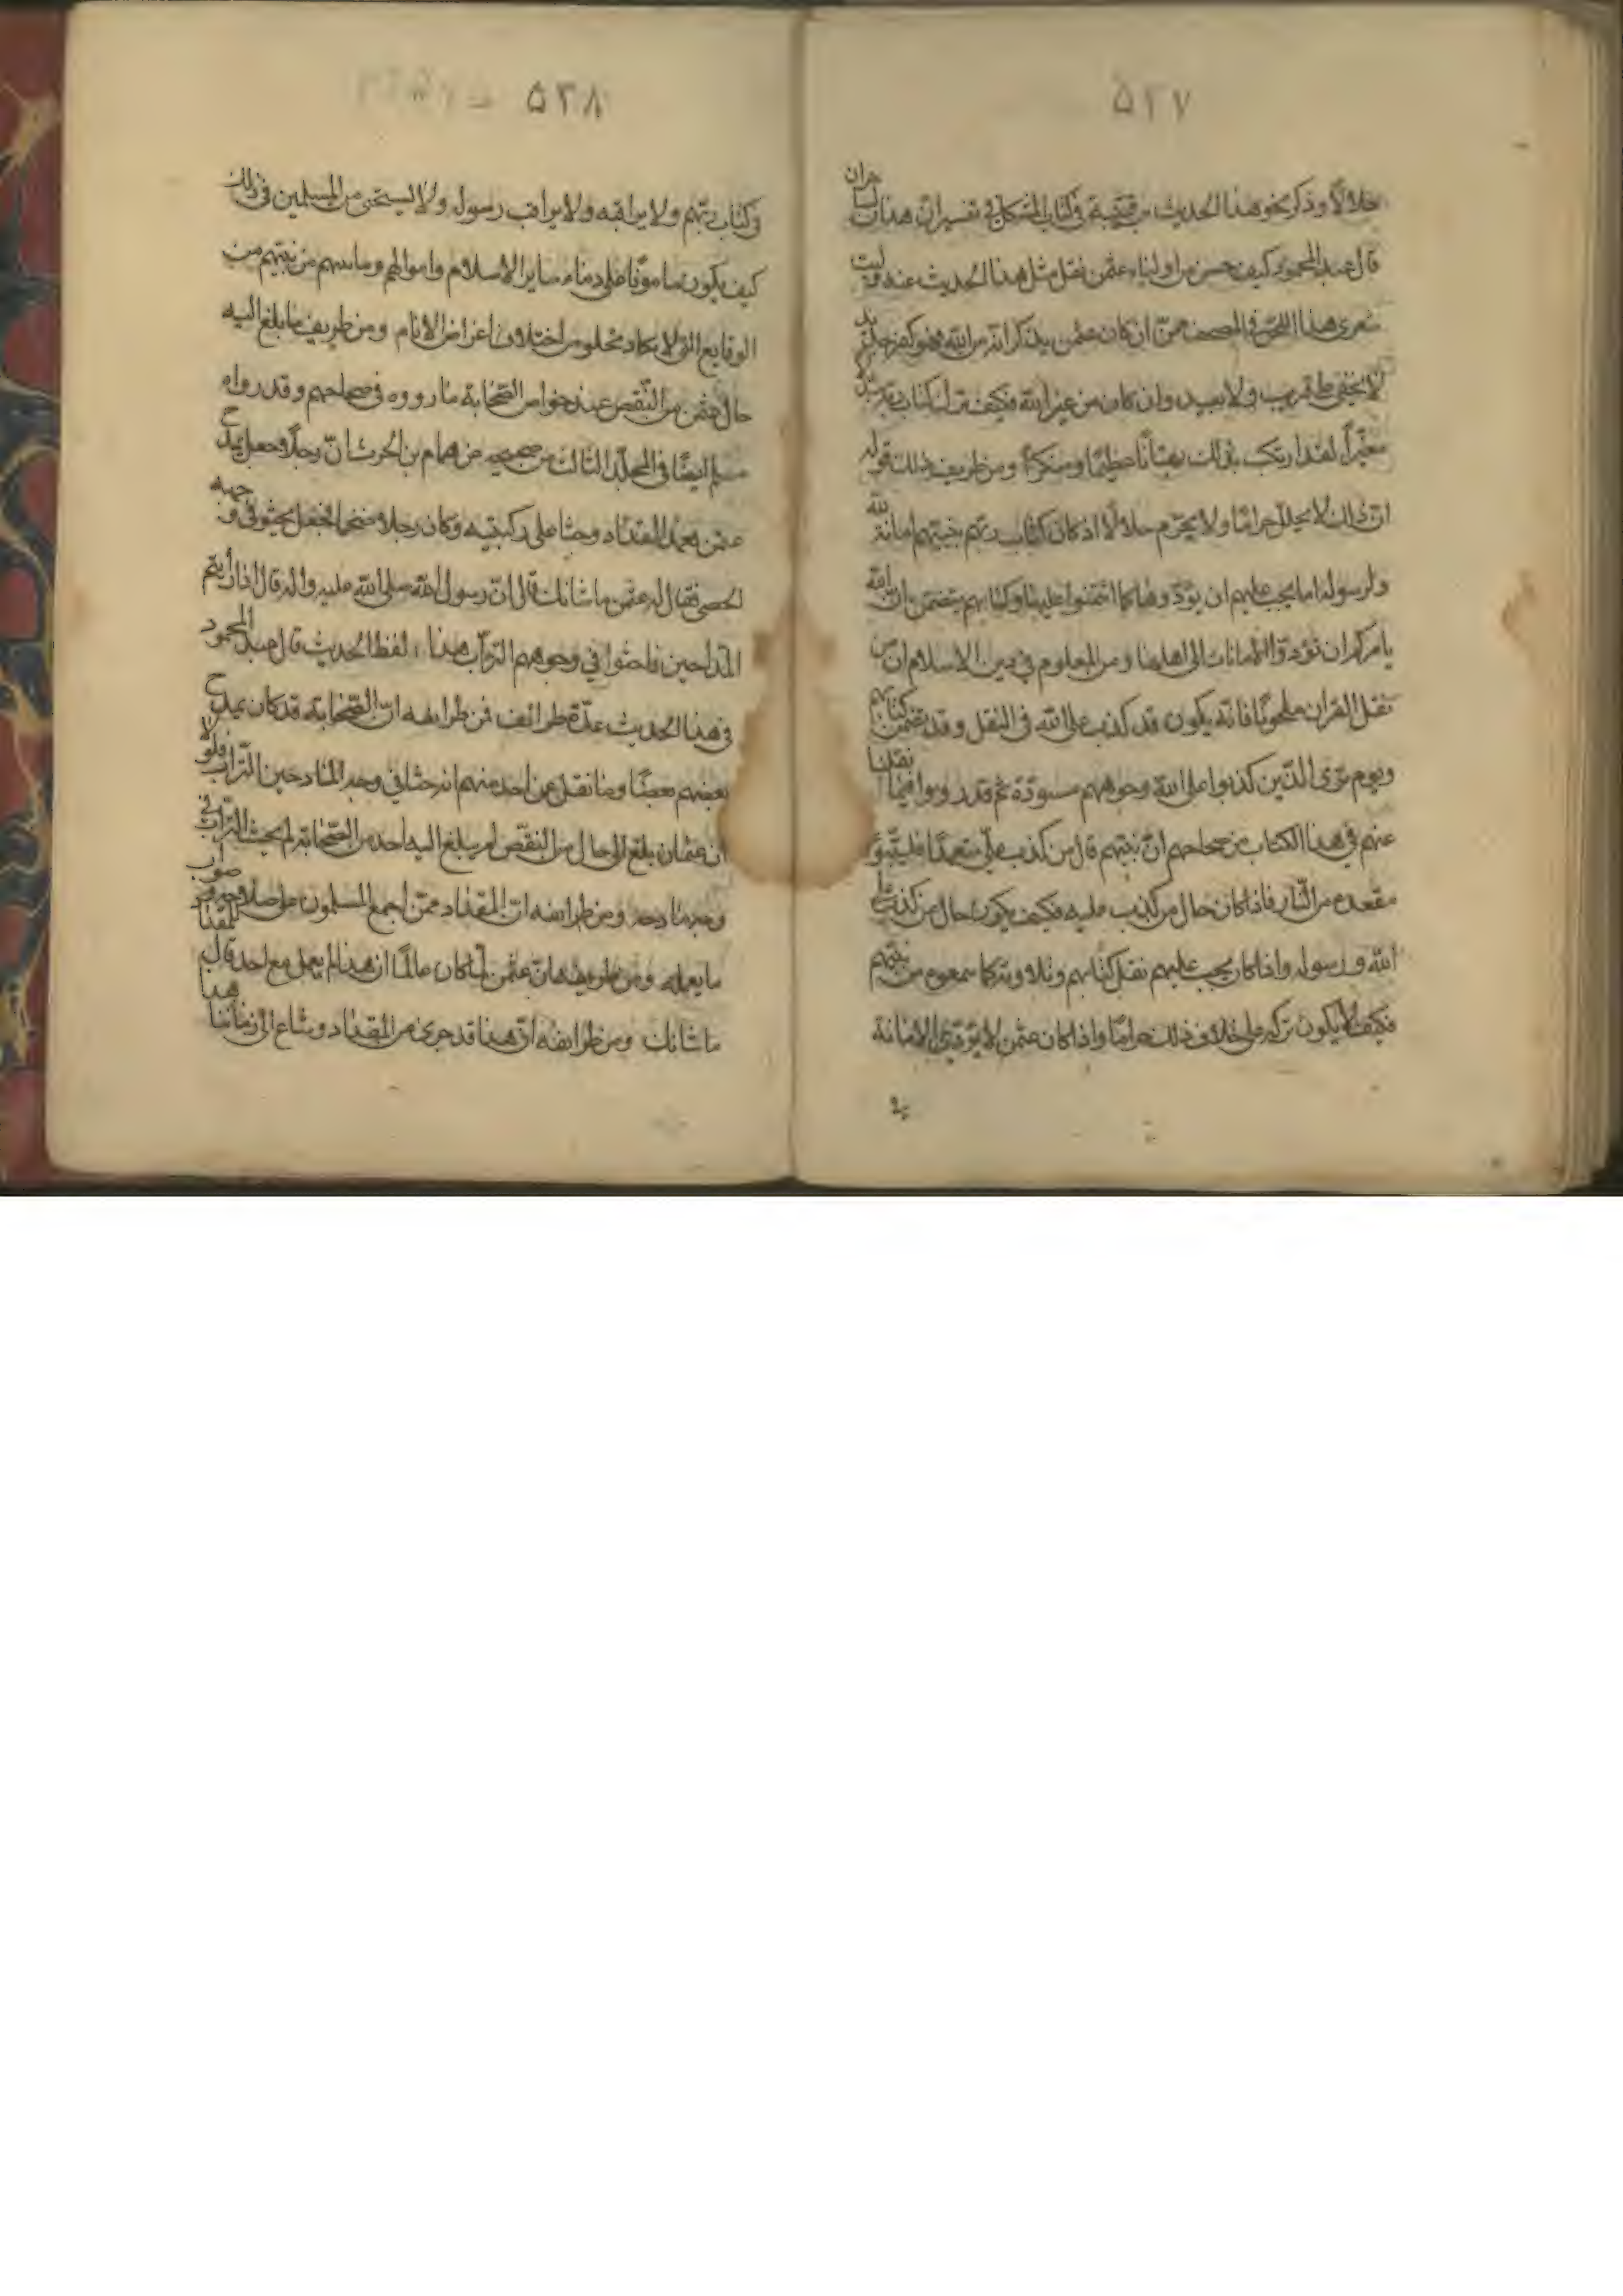 ۵۲۷
حلالا وذكر نحو هذا الحديث بن قتيبة في كتاب المشكل في تفسير ان هذان لساحران
قال عبد المحمود كيف حسن من اولياء عثمن نقل مثل هذا الحديث عنه وليت
شعرى هذا اللحن في المصحف ممن ان كان عثمن يذكر انه من الله فهو كفر جديد
لا يخفى على قريب ولا بعيد وان كان من غير الله فكيف ترك كتاب ربه مبدلا
مغيرا لقد ارتكب بذلك بهتانا عظيما ومنكرا ومن طريف ذلك قوله
ان ذلك لا يحلل حراما ولا يحرم حلالا اذ كان كتاب ربهم بنبيهم امانة لله
ولرسوله اما يجب عليهم ان يؤدوها كما ائتمنوا عليها وكتابهم يتضمن ان الله
يامركم ان تؤدوا الامانات الى اهلها ومن المعلوم في دين الاسلام ان من
نقل القران ملحونا فانه يكون قد كذب على الله في النقل وقد تضمن كتابهم
ويوم ترى الذين كذبوا على الله وجوههم مسودة ثم قد رووا فيما نقلنا
عنهم في هذا الكتاب من صحاحهم ان نبيهم قال من كذب على متعمدا فليتبوء
مقعده من النار فاذا كان حال من كذب عليه فكيف يكون حال من كذب على
الله ورسوله واذا كان يجب عليهم نقل كتابهم وتلاوته كما سمعوه من نبيهم
فكيف لا يكون تركه على خلاف ذلك حراما واذا كان عثمن لا يؤدى الامانة
۵۲۸
في كتاب ربهم ولا يراقبه ولا يراقب رسوله ولا يستحى من المسلمين في ذلك
كيف يكون مامونا على دماء ساير الاسلام واموالهم وما سهم من نبيهم من
الوقايع التي لا يكاد تخلو من اختلاف اغراض الانام ومن طريف ما بلغ اليه
حال عثمن من النقص عند خواص الصحابة ما رووه في صحاحهم وقد رواه
مسلم ايضا في المجلد الثالث من صحيحه من همام بن الحرث ان رجلا جعل يمدح
عثمن فعمد المقداد وجثا على ركبتيه وكان رجلا ضخما فجعل يحثو في وجهه
الحصى فقال له عثمن ما شانك قال ان رسول الله صلى الله عليه واله قال اذا رأيتم
المداحين فاحثوا في وجوههم التراب هذا لفظ الحديث قال عبد المحمود
في هذا الحديث عدة طرائف فمن طرائفه ان الصحابة قد كان يمدح
بعضهم بعضا وما نقل عن احد منهم انه حثا في وجه المادحين التراب فلولا
ان عثمان بلغ الى حال من النقص لم يبلغ اليه احد من الصحابة لم يحث التراب في
وجه مادحه ومن طرائفه ان المقداد ممن اجمع المسلمون على صلاحه وصواب
ما يعمله ومن طريفه ان عثمن لما كان عالما ان هذا لم يعمل مع احد قال للمقداد
ما شانك ومن طرائفه ان هذا قد جرى من المقداد وشاع الى زماننا هذا